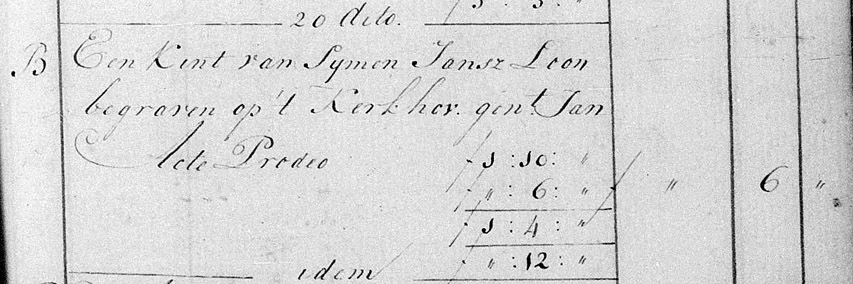 ƒ 3 : 3 : "
20 dito.
B Een Kint van Symen Jansz Loon
begraven op't Kerkhov. gent. Jan
Acte Prodeo ƒ 1 : 10 : "
ƒ " : 6 : " ƒ " 6 "
ƒ 1 : 4 : "
idem ƒ " : 12 : "